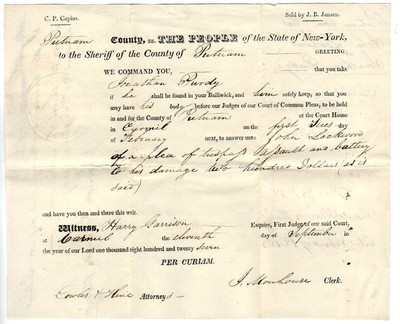 C. P. Capias. Sold by J. B. Jansen.
Putnam County, ss. THE PEOPLE of the State of New-York,
to the Sheriff of the County of Putnam GREETING
WE COMMAND YOU, that you take
Jonathan Purdy
if he shall be found in your Bailiwick, and him safely keep, so that you
may have his body before our Judges of our Court of Common Pleas, to be held
in and for the County of Putnam at the Court House
in Carmel on the first Tues day
of February next, to answer unto John Lockwood
of a plea of trespass assault and battery
to his damage two hundred Dollars (as is
said)
and have you then and there this writ.
Witness, Harry Garrison Esquire, First Judge of our said Court,
at Carmel the eleventh day of September in
the year of our Lord one thousand eight hundred and twenty Seven
PER CURIAM.
J. Morehouse Clerk.
Attorneys